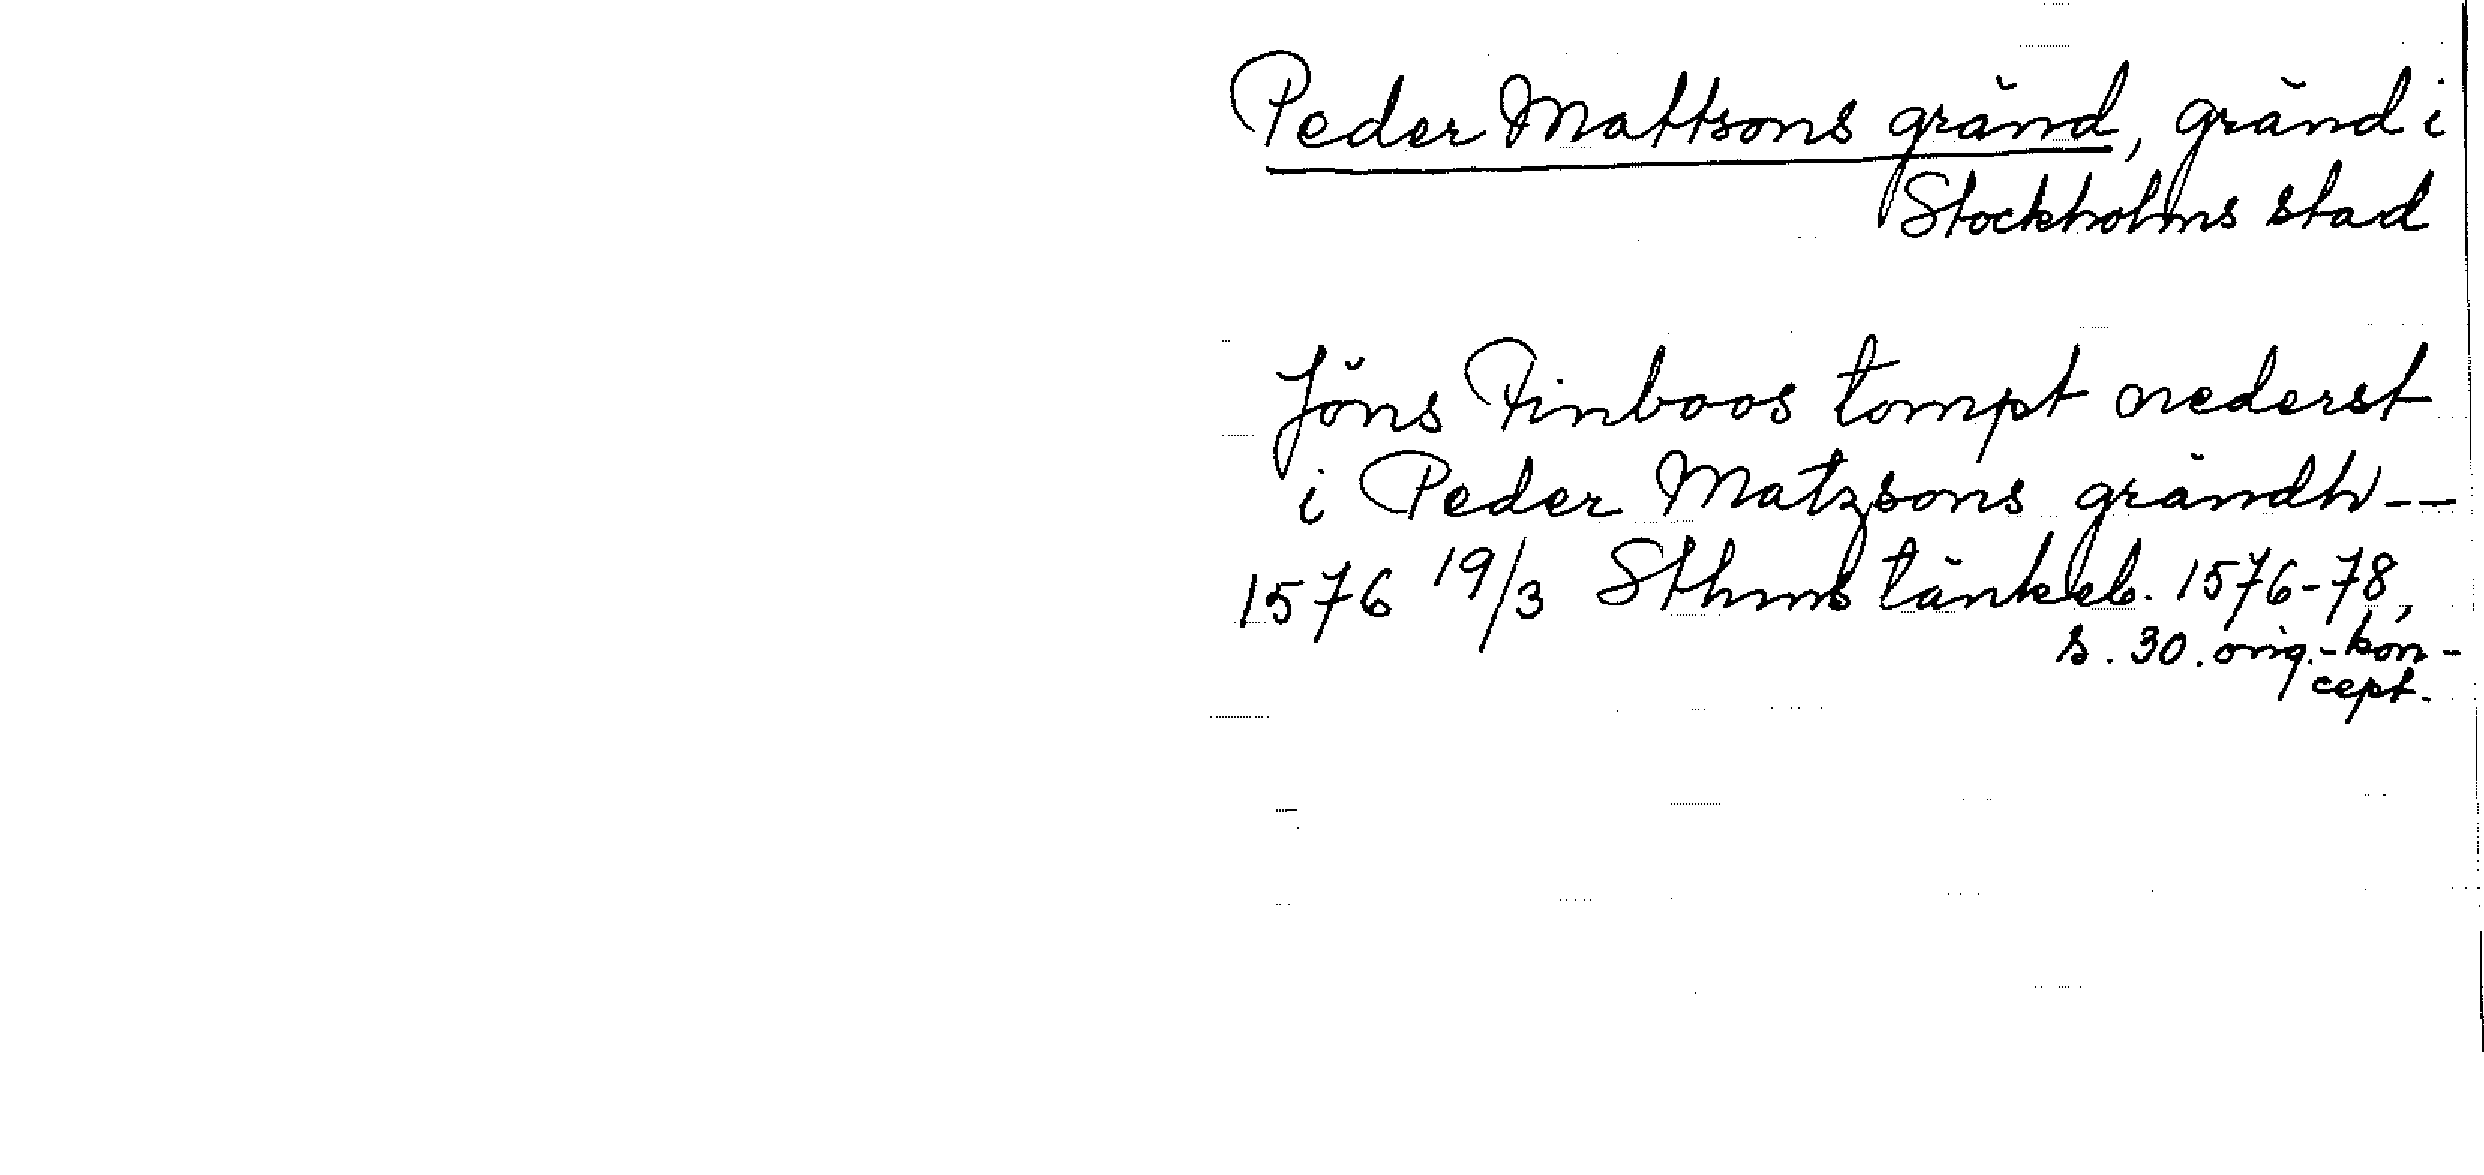 Peder Mattsons gränd, gränd i
Stockholms stad
Jöns Finboos tompt nederst
i Peder Matzsons grändh --
1576 19/3 Sthms tänkeb. 1576-78,
s. 30. orig.-kon-
cept.